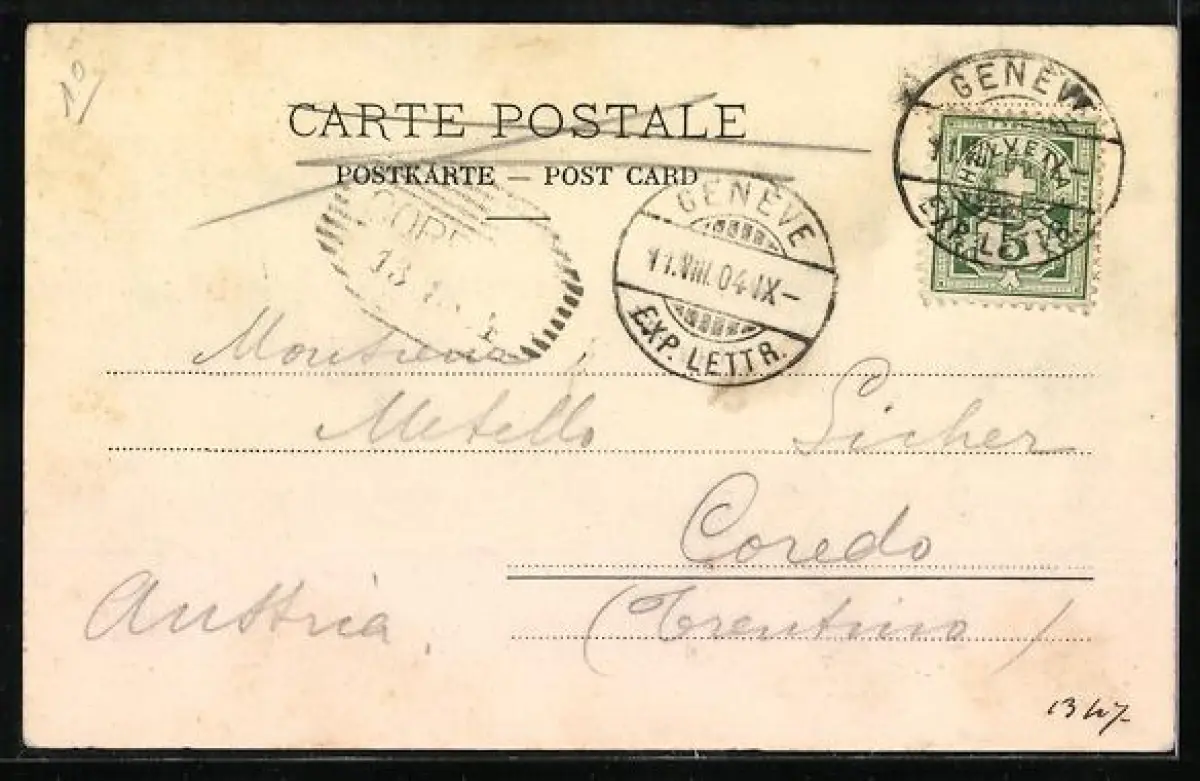 10
CARTE POSTALE
POSTKARTE — POST CARD
GENÈVE
EXP. LETTR.
HELVETIA
5
GENÈVE
11.VIII.04.IX–
EXP. LETTR.
CORE
13
Metello Sicher
Coredo
(Trentino)
Austria
1347